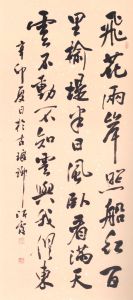 飛花兩岸照船紅百
里榆堤半日風臥看滿天
雲不動不知雲與我俱東
辛卯夏日於古琅琊